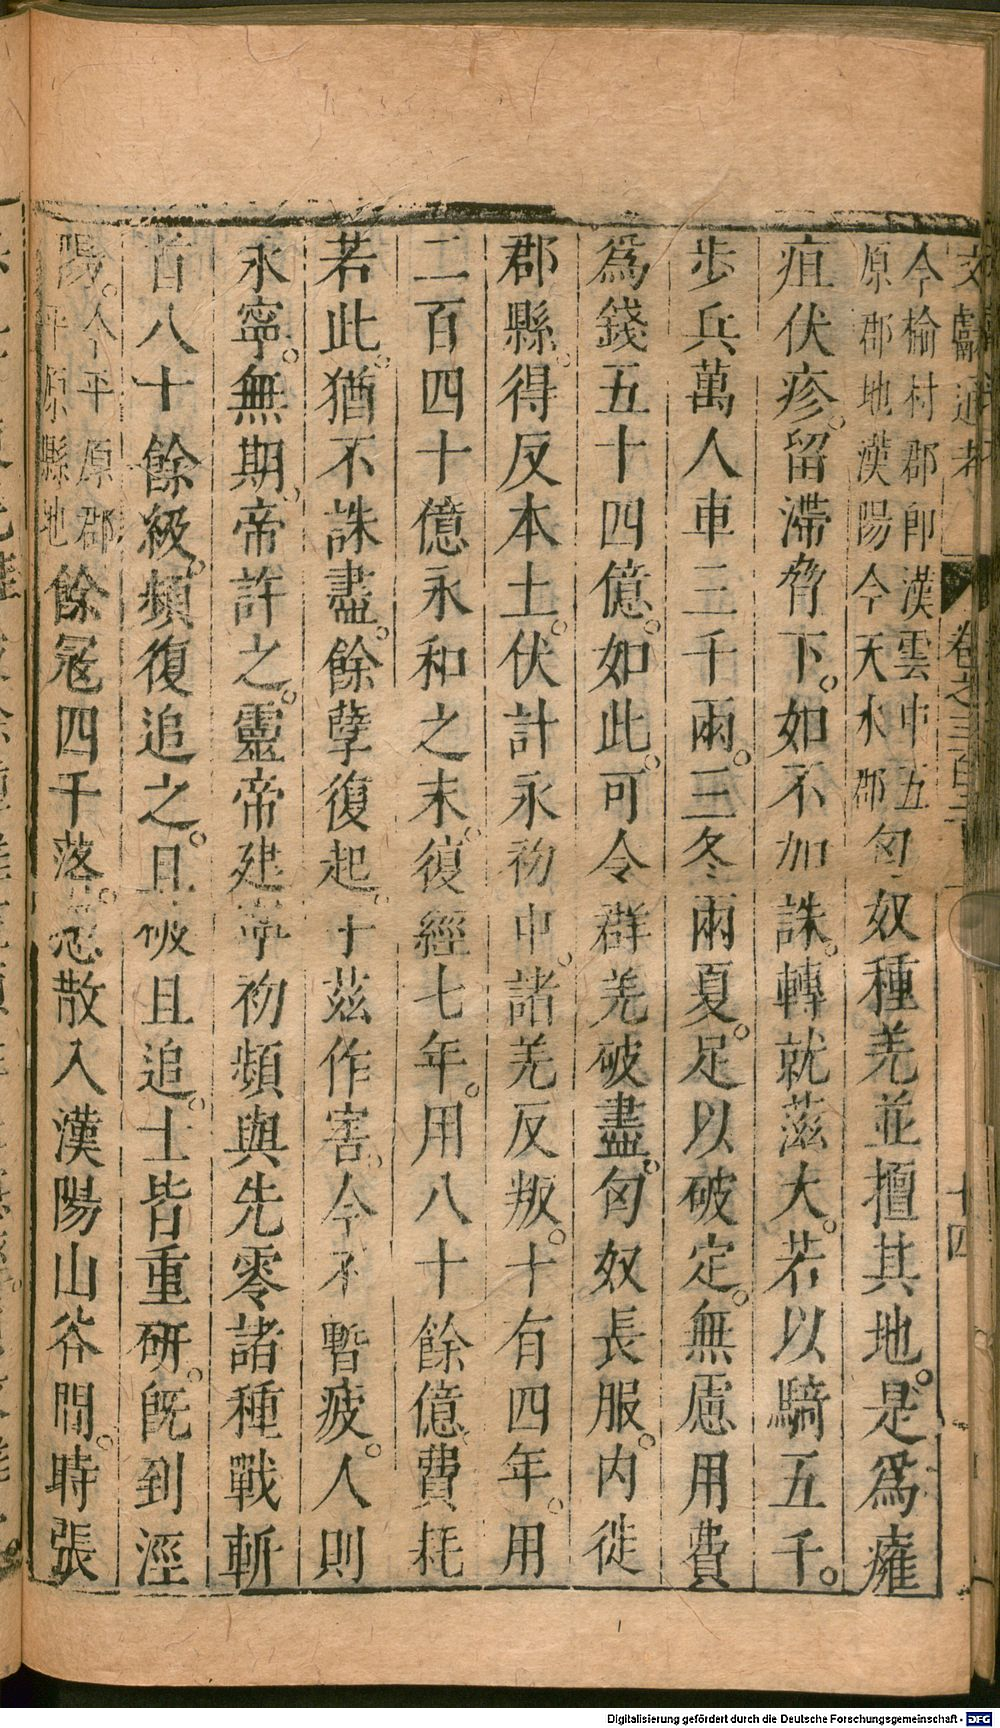 文獻通考 卷之三百三 十四
今榆村郡郎漢雲中五
原郡地漢陽今天水郡
匈奴種羌並擅其地。是爲癰
疽伏疹。留滯脅下。如不加誅。轉就滋大。若以騎五千。
步兵萬人車三千兩。三冬兩夏。足以破定。無慮用費
爲錢五十四億。如此。可令群羌破盡。匈奴長服。内徙
郡縣。得反本土。伏計永初中。諸羌反叛。十有四年。用
二百四十億永和之末。復經七年。用八十餘億。費耗
若此。猶不誅盡。餘孽復起。于茲作害。今不暫疲。人則
永寧。無期。帝許之。靈帝建寧初頻與先零諸種戰斬
首八十餘級。頻復追之。且破且追。士皆重研。旣到涇
陽。
今平原郡
平原縣地
餘冦四千落。悉散入漢陽山谷間。時張
Digitalisierung gefördert durch die Deutsche Forschungsgemeinschaft - DFG